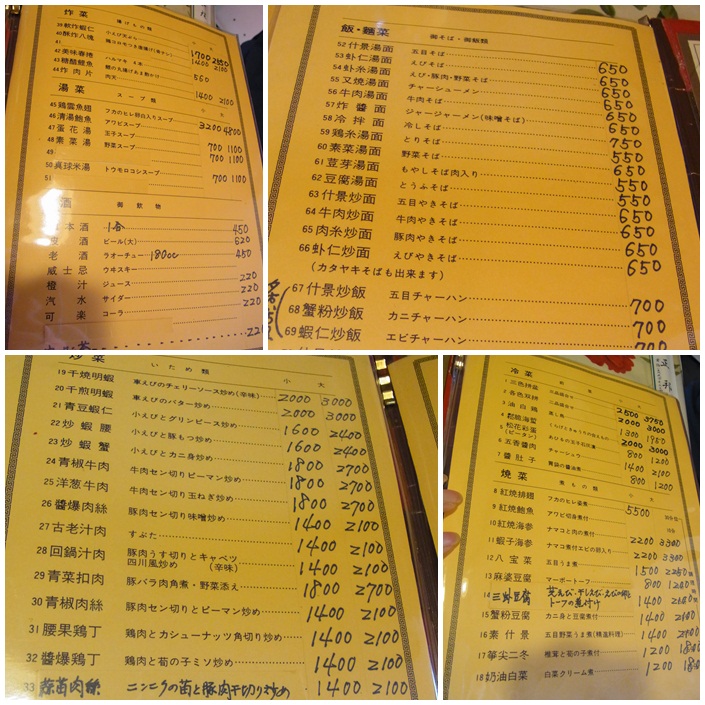 炸菜 揚げもの類 小 大
39 軟炸蝦仁 小えび天ぷら 1700 2550
40 酥炸八塊 1400 2100
41
42 美味春捲 ハルマキ
43 糖醋鯉魚
44 炸肉片 肉天 1400 2100
湯菜 スープ類 小 大
45 鶏雲魚翅 フカのヒレ卵白入りスープ 3200 4800
46 清湯鮑魚 アワビスープ
47 蛋花湯 玉子スープ 700 1100
48 素菜湯 野菜スープ 700 1100
49
50 真珠米湯 トウモロコシスープ 700 1100
51
酒 御飲物
本酒 1合 450
酒 ビール(大) 620
老酒 ラオーチュー 180cc 450
威士忌 ウヰスキー
橙汁 ジュース 220
汽水 サイダー 220
可楽 コーラ 220
飯・麵菜 御そば・御飯類
52 什景湯面 五目そば 650
53 蝦仁湯面 えびそば 650
54 蝦糸湯面 えび・豚肉・野菜そば 650
55 叉焼湯面 チャーシューメン 650
56 牛肉湯面 牛肉そば 650
57 炸醬面 ジャージャーメン(味噌そば) 650
58 冷拌面 冷しそば 750
59 鶏糸湯面 とりそば 550
60 素菜湯面 野菜そば 550
61 荳芽湯面 もやしそば肉入り 550
62 豆腐湯面 とうふそば 550
63 什景炒面 五目やきそば 650
64 牛肉炒面 牛肉やきそば 650
65 肉糸炒面 豚肉やきそば 650
66 蝦仁炒面 えびやきそば 650
(カタヤキそばも出来ます)
67 什景炒飯 五目チャーハン 700
68 蟹粉炒飯 カニチャーハン 700
69 蝦仁炒飯 エビチャーハン
炒菜 いため類 小 大
19 干焼明蝦 車えびのチェリーソース炒め(辛味) 2000 3000
20 干煎明蝦 車えびのバター炒め 2000 3000
21 青豆蝦仁 小えびとグリンピース炒め 1600 2400
22 炒蝦腰 小えびと豚もつ炒め 1600 2400
23 炒蝦蟹 小えびとカニ身炒め 1800 2700
24 青椒牛肉 牛肉セン切りピーマン炒め 1800 2700
25 洋葱牛肉 牛肉セン切り玉ねぎ炒め 1800 2700
26 醬爆肉絲 豚肉セン切り味噌炒め 1400 2100
27 古老汁肉 すぶた 1400 2100
28 回鍋汁肉 豚肉うす切りとキャベツ四川風炒め (辛味) 1400 2100
29 青菜扣肉 豚バラ肉角煮・野菜添え 1800 2700
30 青椒肉絲 豚肉セン切りとピーマン炒め 1400 2100
31 腰果鶏丁 鶏肉とカシューナッツ角切り炒め 1400 2100
32 醬爆鶏丁 鶏肉と筍の子ミソ炒め 1400 2100
33 蒜苗肉絲 ニンニクの苗と豚肉千切り炒め 1400 2100
冷菜 前菜 小 大
1 三色拼盆 2500 3750
2 各色双拼 2000 3000
3 油白鶏
4 都脆海蜇 1300 1950
5 松花彩蛋 (ピータン) あひるの玉子石灰漬 2000 3000
6 五香醬肉 チャーシュウ 800 1200
7 醬肚子 1400 2100
800 1200
焼菜 煮もの類 小 大
8 紅焼排翅 フカのヒレ姿煮 5500
9 紅焼鮑魚 アワビ切身煮付
10 紅焼海参 ナマコと肉の煮付 2200 3300
11 蝦子海参 ナマコ煮付エビの卵入り 2200 3300
12 八宝菜 五目うま煮 1500 2250
13 麻婆豆腐 マーボートーフ 800 1200
14 三虾豆腐 芝えび、干しえび、えびの卵とトーフの煮付け 1400 2100
15 蟹粉豆腐 カニ身と豆腐煮付 1400 2100
16 素什景 五目野菜うま煮(精進料理) 1400 2100
17 筝尖二冬 椎茸と筍の子煮付 1200 1800
18 奶油白菜 白菜クリーム煮 1200 1800